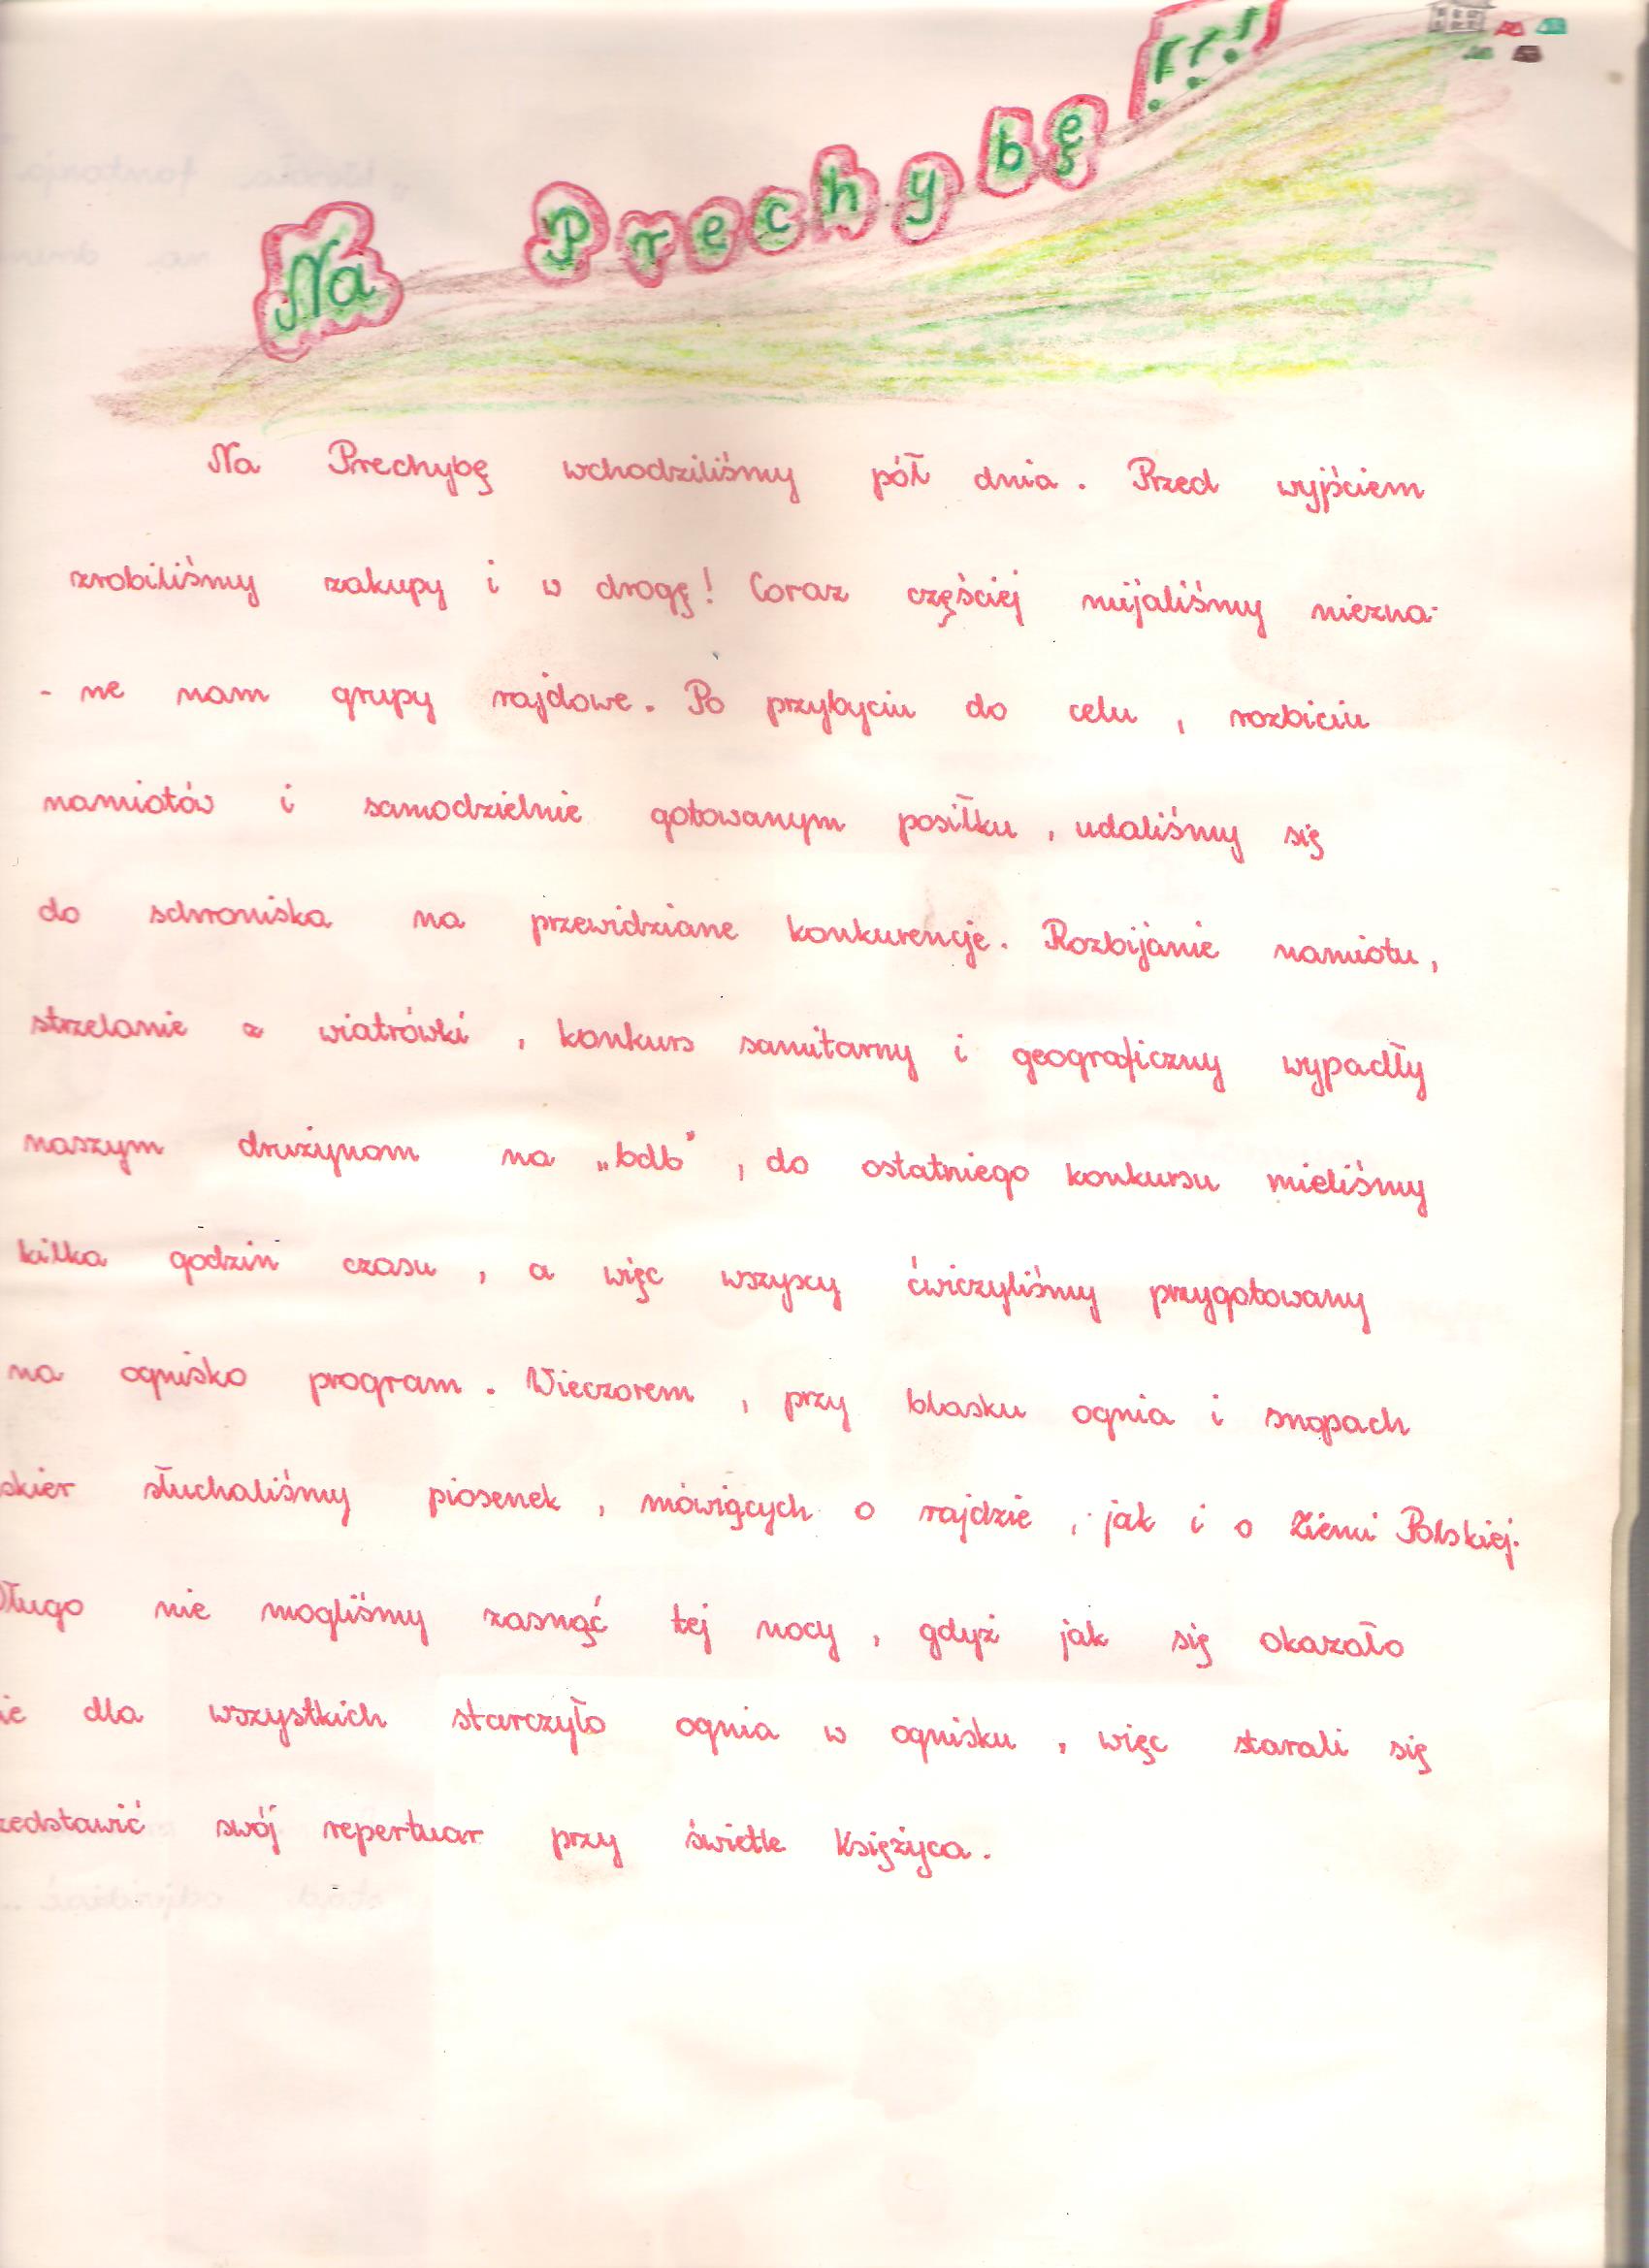 Na Prechybę !!!
Na Prechybę wchodziliśmy pół dnia. Przed wyjściem
zrobiliśmy zakupy i w drogę! Coraz częściej mijaliśmy niezna-
- ne nam grupy rajdowe. Po przybyciu do celu, rozbiciu
namiotów i samodzielnie gotowanym posiłku, udaliśmy się
do schroniska na przewidziane konkurencje. Rozbijanie namiotu,
strzelanie z wiatrówki, konkurs sanitarny i geograficzny wypadły
naszym drużynom na „bdb”, do ostatniego konkursu mieliśmy
kilka godzin czasu, a więc wszyscy ćwiczyliśmy przygotowany
na ognisko program. Wieczorem, przy blasku ognia i snopach
skier słuchaliśmy piosenek, mówiących o rajdzie, jak i o Ziemi Polskiej.
Długo nie mogliśmy zasnąć tej nocy, gdyż jak się okazało
ie dla wszystkich starczyło ognia w ognisku, więc starali się
zedstawić swój repertuar przy świetle Księżyca.